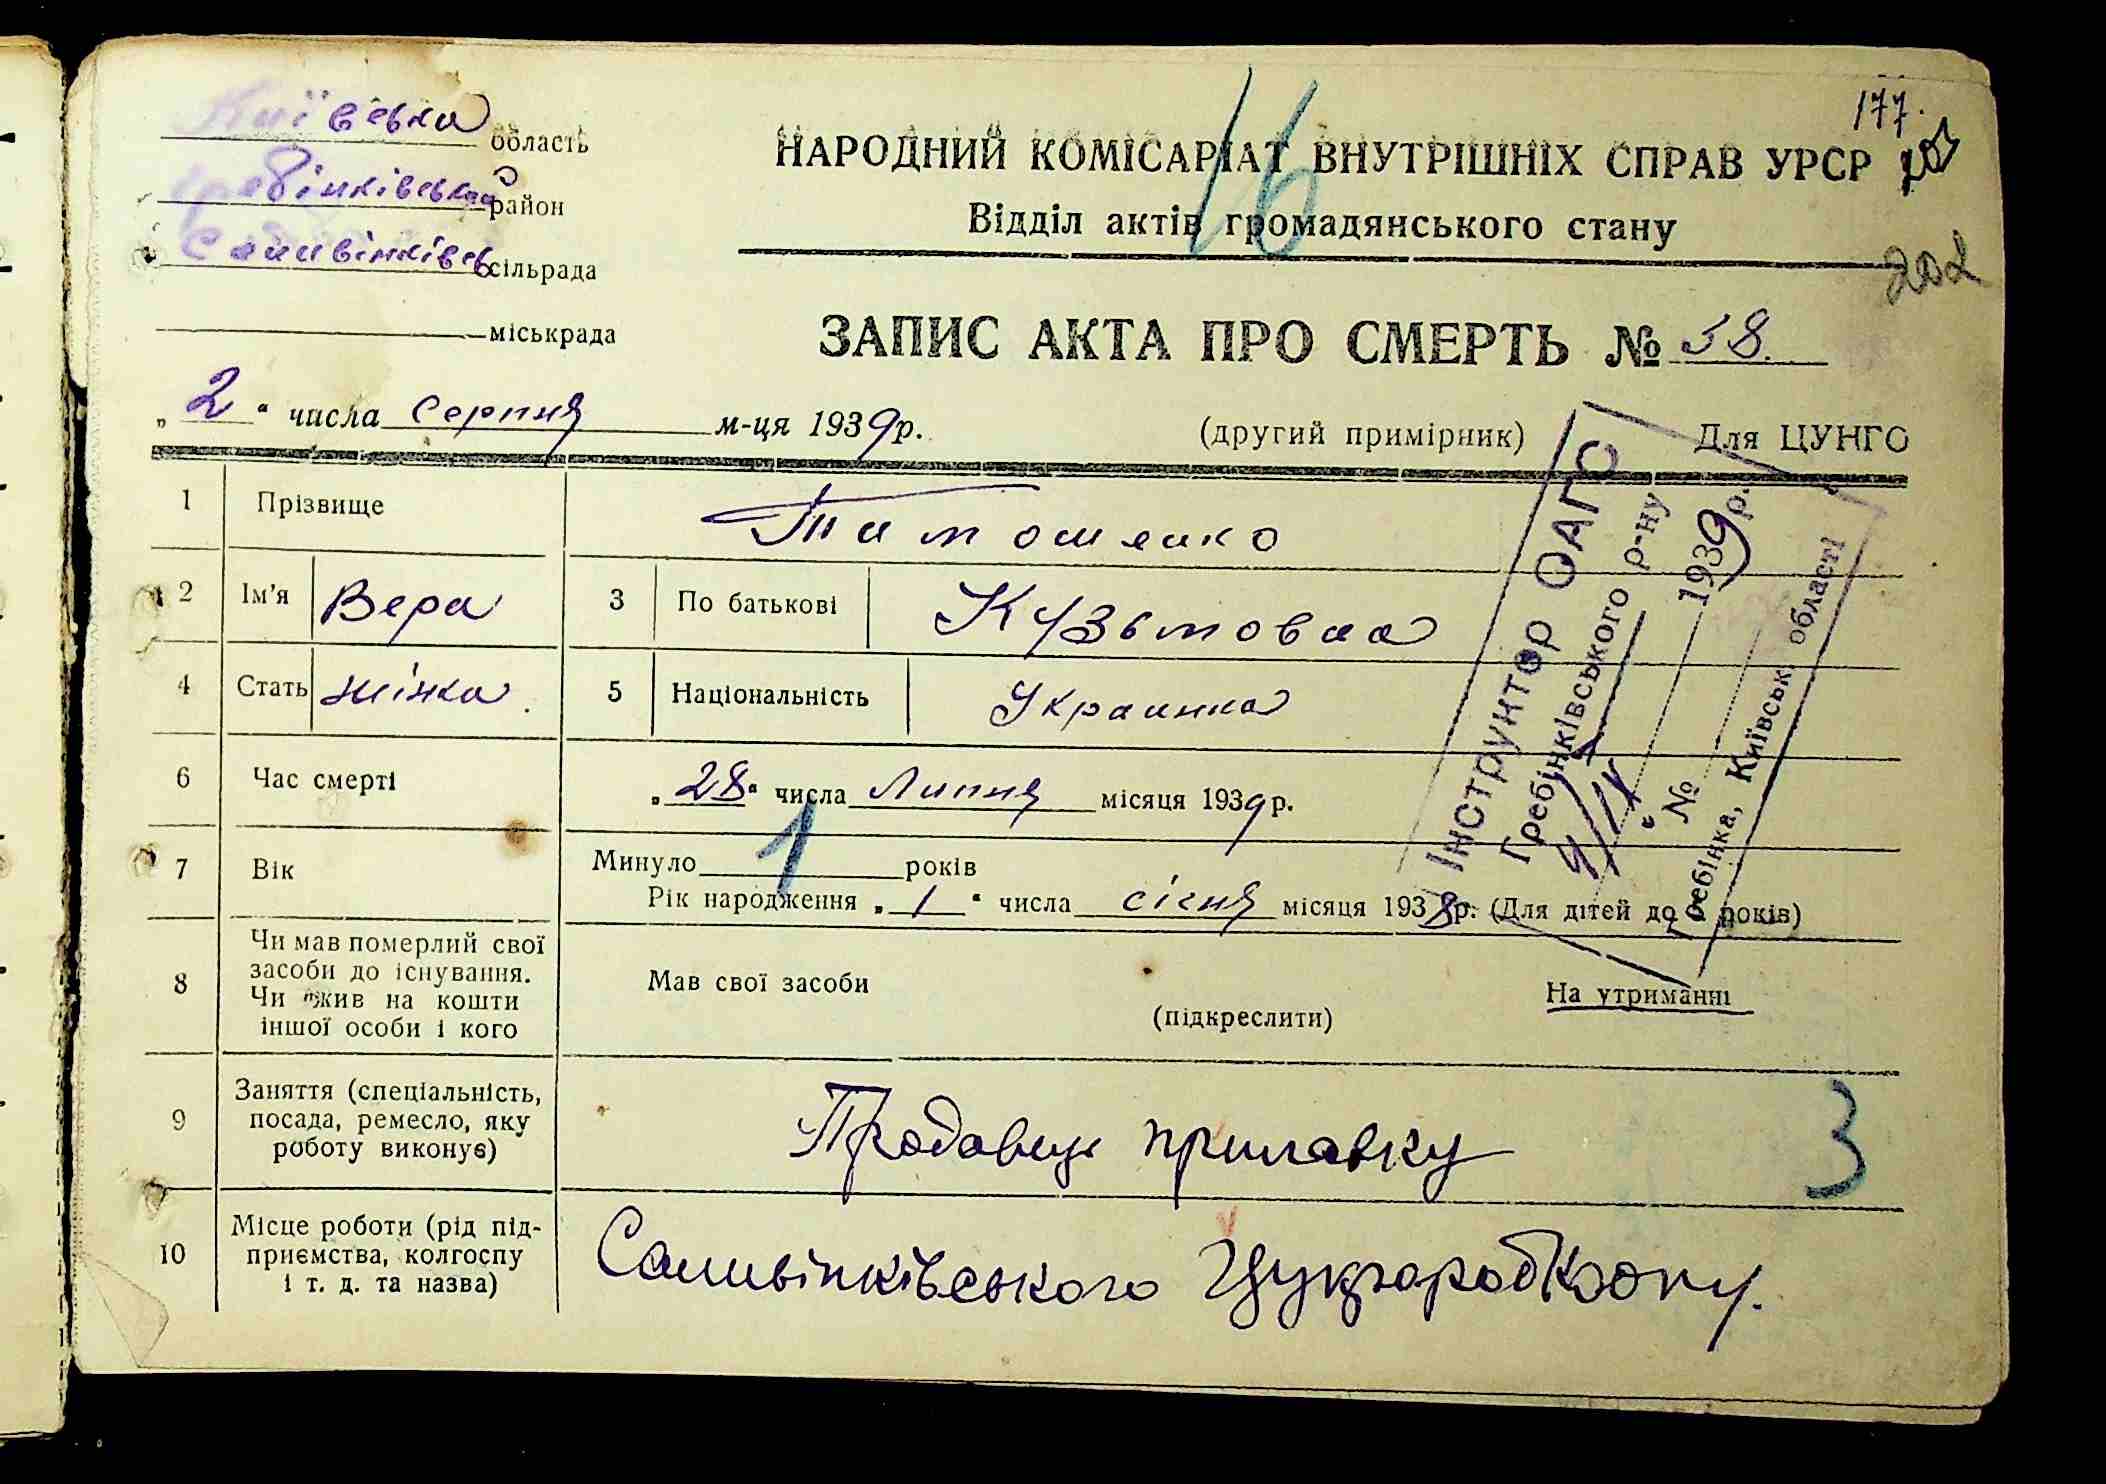 Київська область
Гребінківський район
Саливінківсь сільрада
міськрада
177.
НАРОДНИЙ КОМІСАРІАТ ВНУТРІШНІХ СПРАВ УРСР
Відділ актів громадянського стану
16
202
ЗАПИС АКТА ПРО СМЕРТЬ № 58.
„2" числа серпня м-ця 1939р.
(другий примірник)
Для ЦУНГО
1 Прізвище Тимошенко
2 Ім'я Вера 3 По батькові Кузьмовна
4 Стать жінка. 5 Національність Украинка
6 Час смерті „28" числа Липня місяця 1939р.
7 Вік Минуло 1 років
Рік народження „1" числа січня місяця 1938р. (Для дітей до років)
8 Чи мав померлий свої
засоби до існування.
Чи жив на кошти
іншої особи і кого
Мав свої засоби
(підкреслити)
На утриманні
9 Заняття (спеціальність,
посада, ремесло, яку
роботу виконує)
Продавець прилавку
3
10 Місце роботи (рід під-
приємства, колгоспу
і т. д. та назва)
Саливінківського Цукроробкоопу.
Інструктор ОАГС
Гребінківського р-ну
1939р.
№
Гребінка, Київськ. області